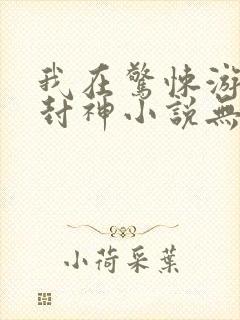 我在驚悚游
封神小說無
小荷采葉